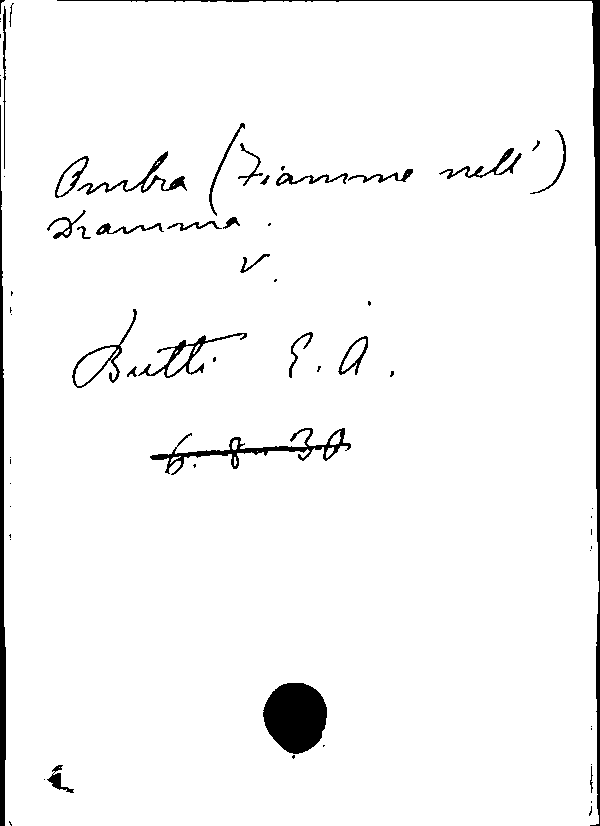 Ombra (Fiamme nell')
Dramma.
V.
Butti E. A.
6. 8. 30